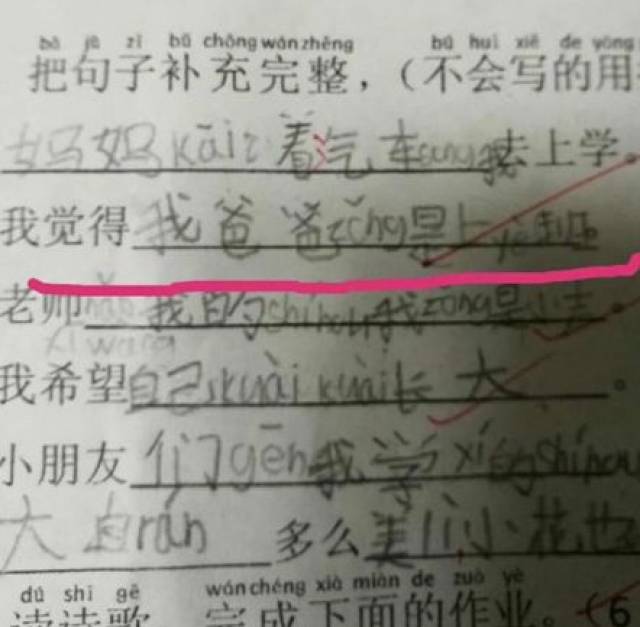 bǎ jù zǐ bǔ chōng wán zhěng bú huì xiě de yòng
把句子补充完整，（不会写的用
妈妈kāi着汽车sòng我去上学。
我觉得我爸爸zǒng是上yè到
老师我的shíhou我zǒng是小
xī wàng
我希望自己kuài kuài长大。
小朋友们gēn我学xí的shíhou
大自rán多么美lì小花也
dú shī gē wán chéng xià miàn de zuò yè
读诗歌，完成下面的作业。（6